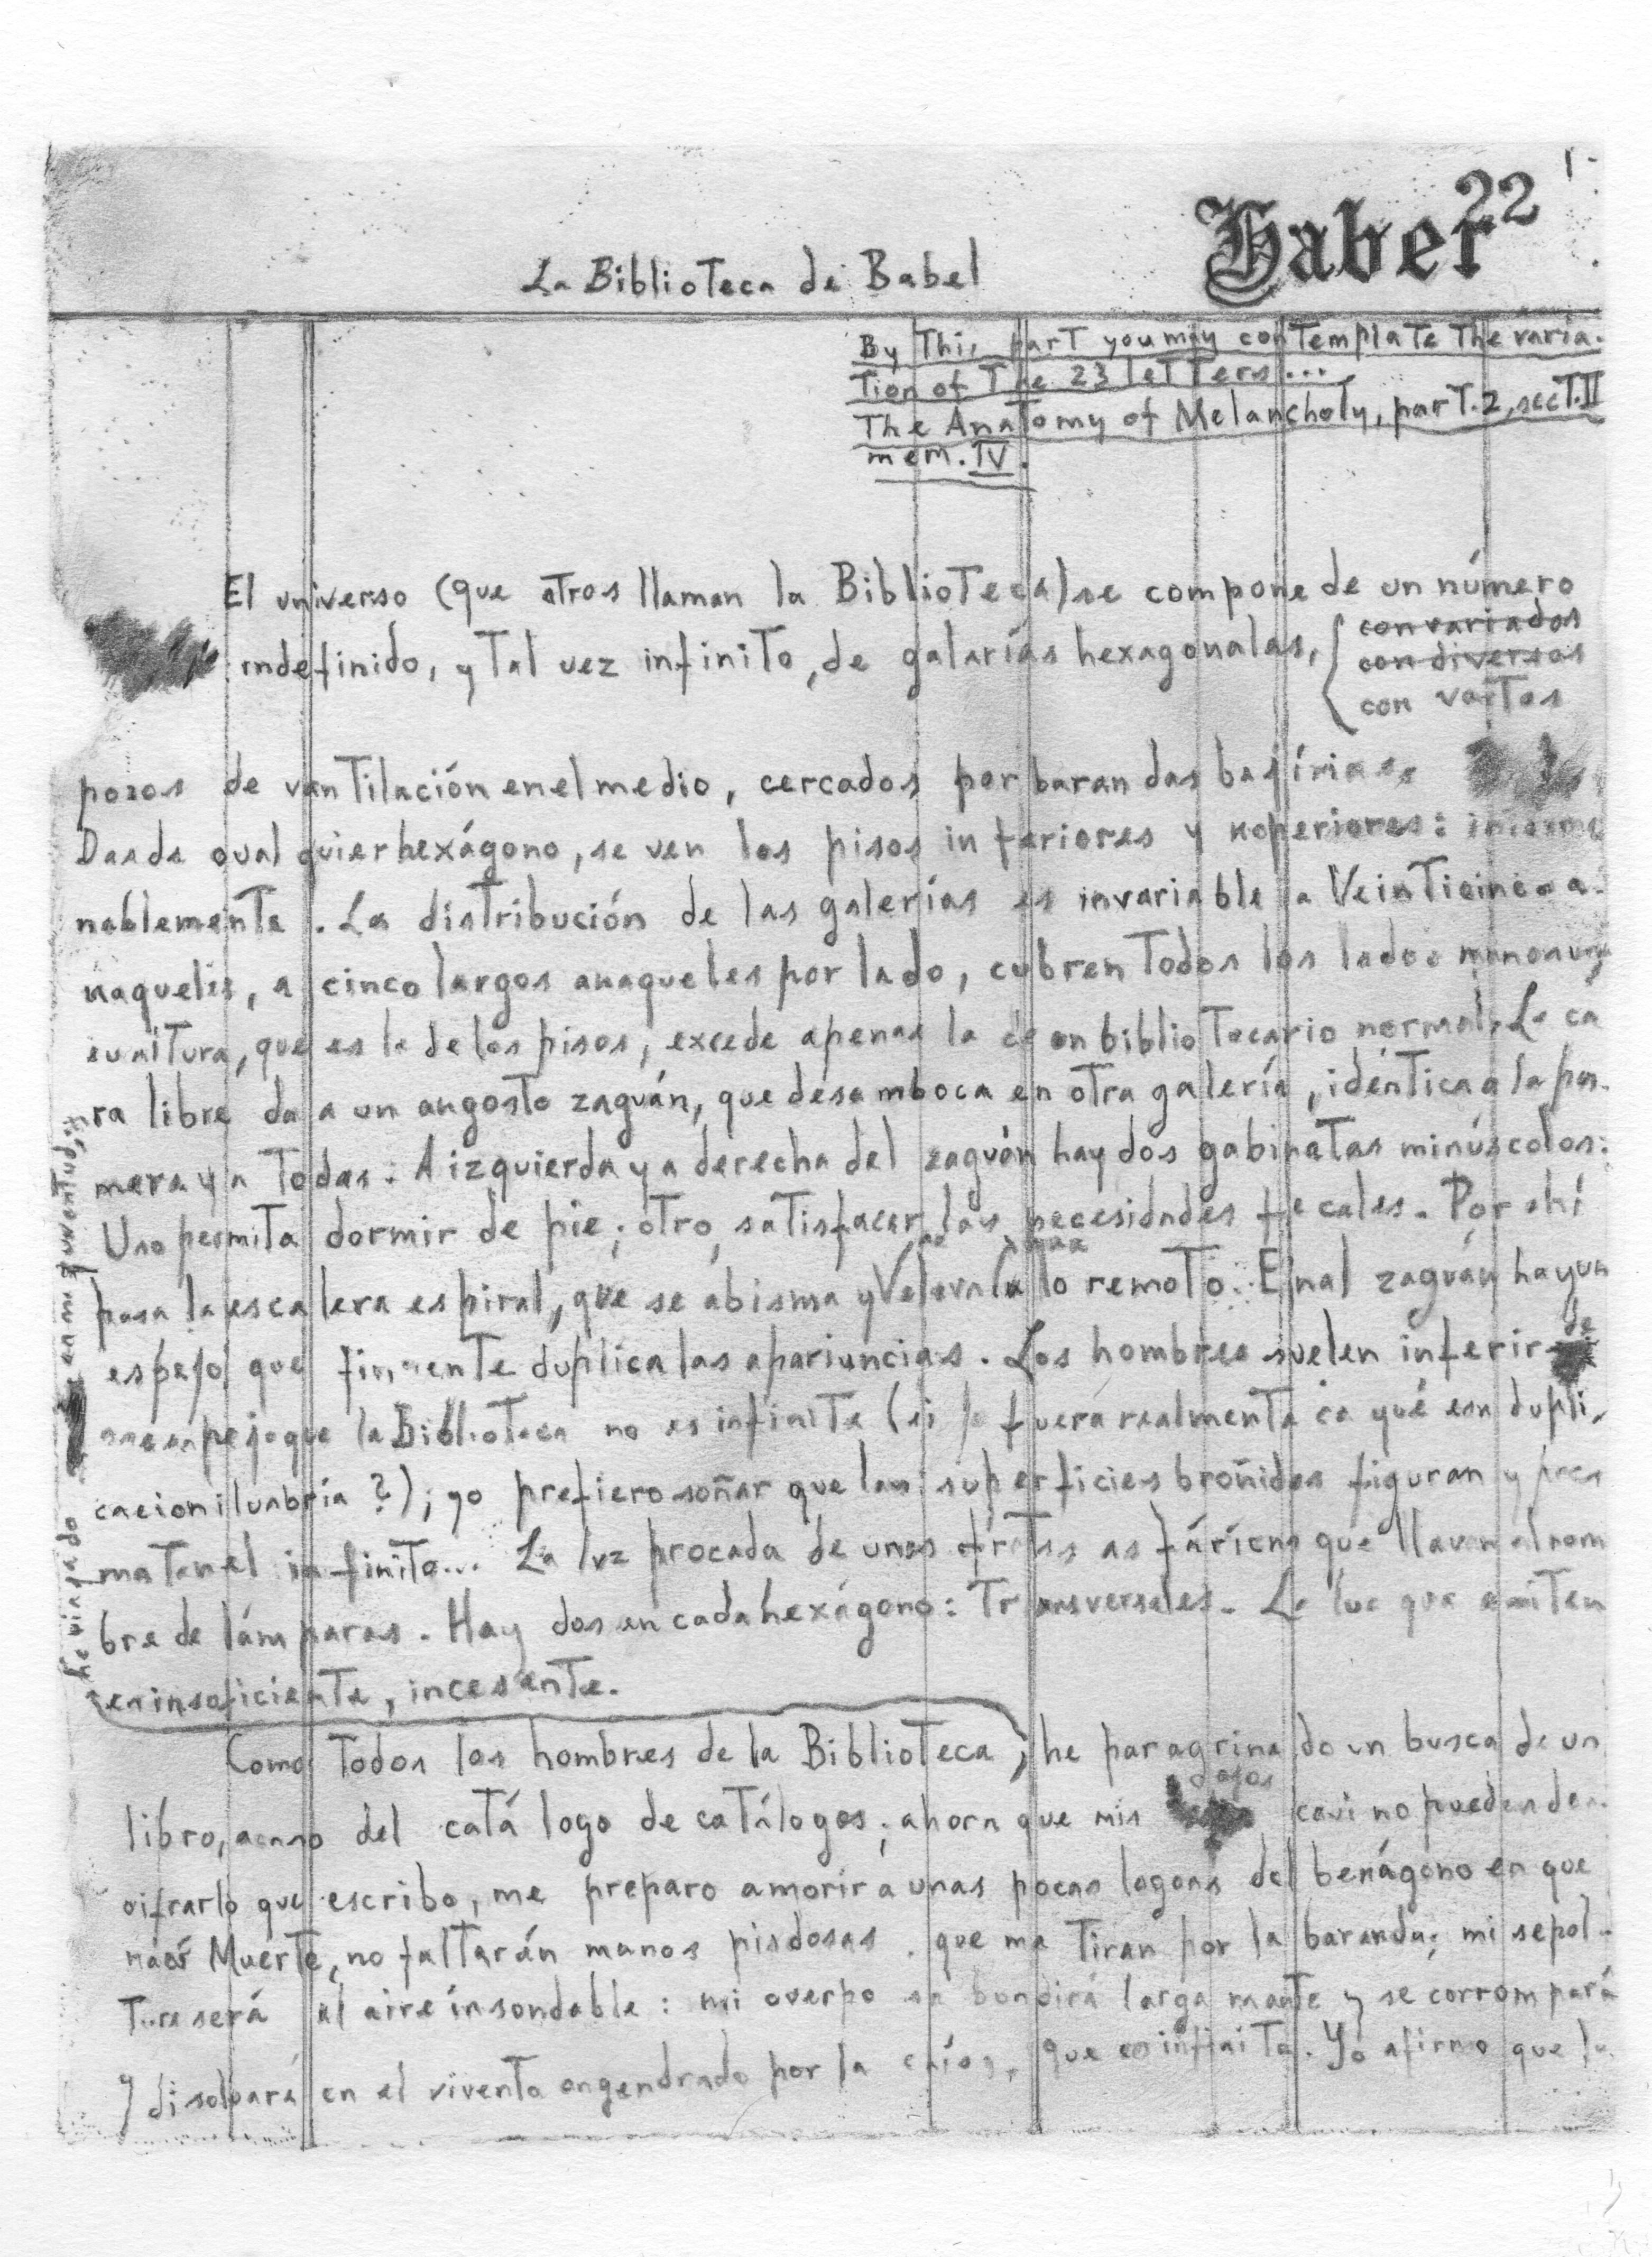 1.
Haber 22
La Biblioteca de Babel
By This part you may contemplate The varia-
tion of The 23 letters...
The Anatomy of Melancholy, part. 2, sect. II
mem. IV.
El universo (que otros llaman la Biblioteca) se compone de un número
indefinido, y tal vez infinito, de galarías hexagonalas,
con variados
con diversos
con vastos
pozos de vantilación en el medio, cercados por barandas bajísimas.
Dasde cualquier hexágono, se ven los pisos inferiores y superiores:
nablemente. La distribución de las galerías es invariable. Veinticinco a-
naqueles, a cinco largos anaqueles por lado, cubren todos los lados menos uno
su altura, que es la de los pisos, excede apenas la de un bibliotecario normal. La ca
ra libre da a un angosto zaguán, que desamboca en otra galería, idéntica a la pri-
mera y a todas. A izquierda y a derecha del zaguán hay dos gabinetas minúscolos:
Uno permita dormir de pie; otro, satisfacer las necesidades fecales. Por ahí
pasa la escalera espiral, que se abisma y se eleva hacia lo remoto. En al zaguán hay un
espejo, que fielmente duplica las apariencias. Los hombres suelen inferir de
ese espejo que la Biblioteca no es infinita (si lo fuera realmente ¿a qué esa dupli-
cación ilusoria?); yo prefiero soñar que las superficies broñidas figuran y pro
maten el infinito... La luz procada de unas frutas asfáricas que llavan el nom
bre de lámparas. Hay dos en cada hexágono: Transversales. La luz que emiten
es insuficiente, incesante.
Como todos los hombres de la Biblioteca, he paragrinado en busca de un
he viajado en mi juventud;
libro, acaso del catálogo de catálogos; ahora que mis ojos casi no pueden des-
cifrar lo que escribo, me preparo a morir a unas pocas leguas del hexágono en que
nací Muerto, no faltarán manos piadosas que me tiran por la baranda; mi sepol-
tura será el aire insondable: mi cuerpo se hundirá largamante y se corrompará
y disolvará en el viento engendrado por la caída, que es infinita. Yo afirmo que la